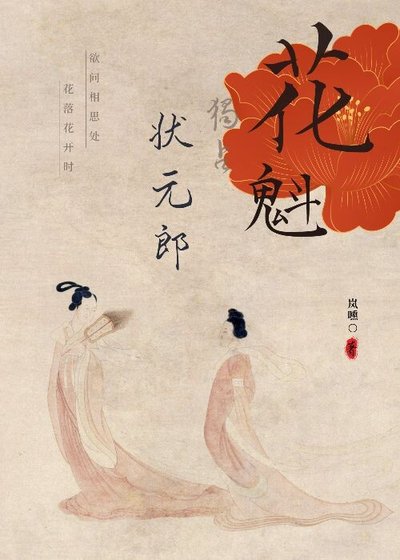 花魁
獨占
状元郎
欲问相思处
花落花开时
岚噀〇
著